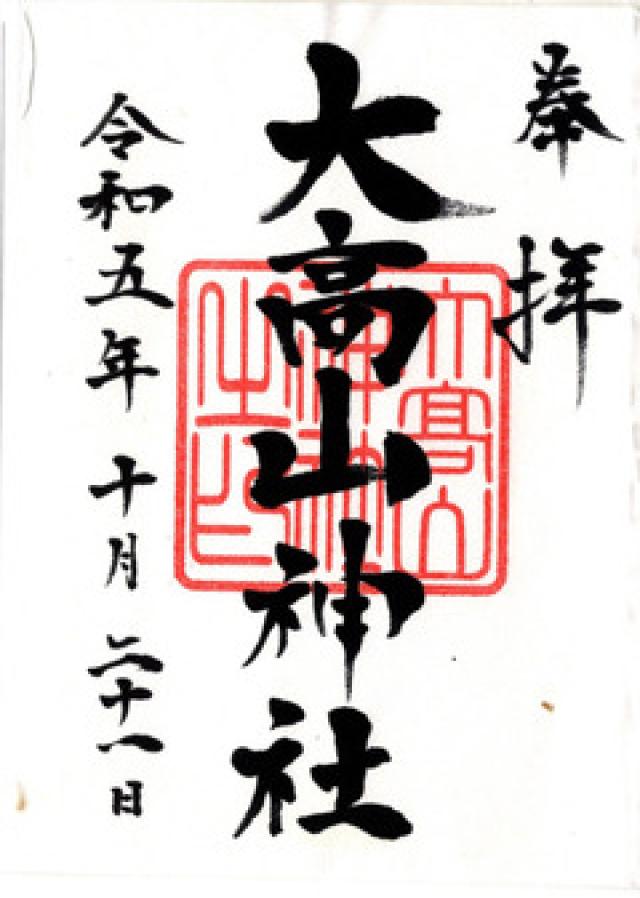 奉拝
大高山神社
大高山神社之印
令和五年十月二十一日